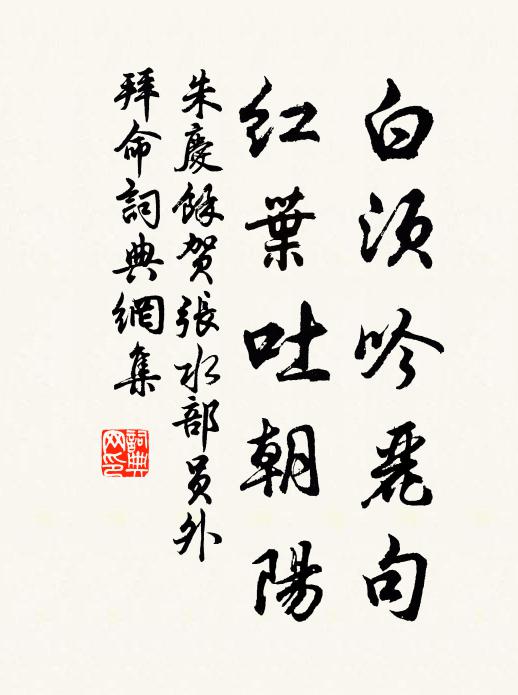 白須吟麗句
紅葉吐朝陽
朱慶餘賀張水部员外
拜命詞典網集
詞典网印